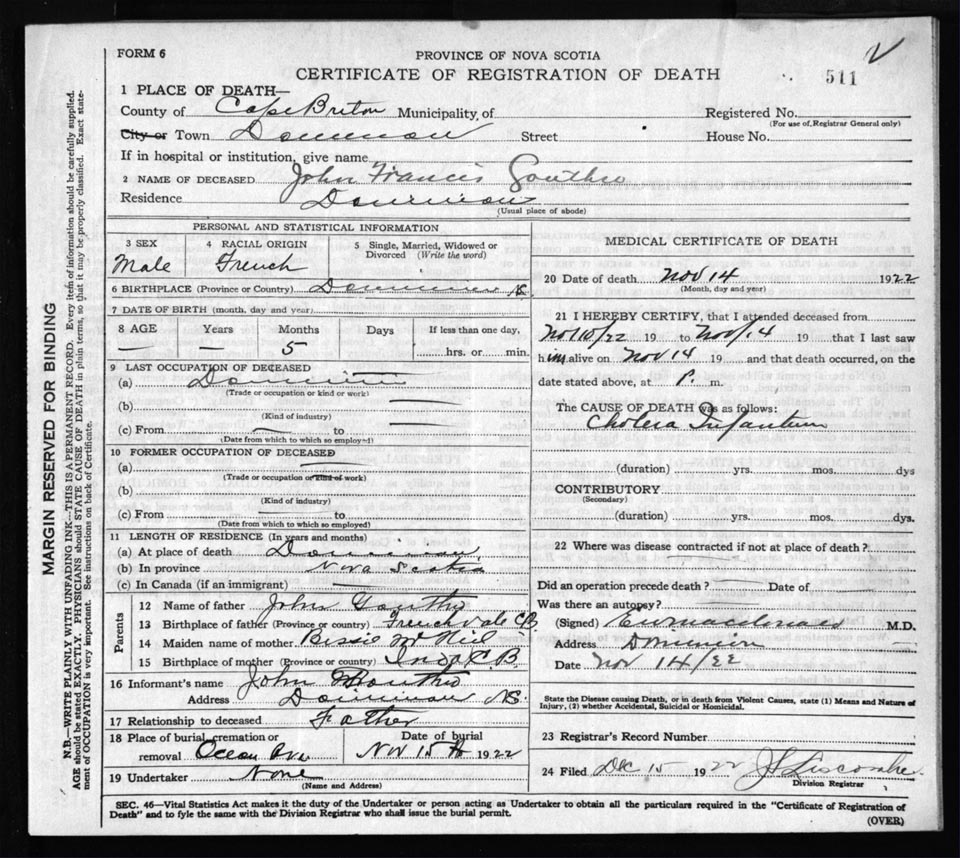 FORM 6
PROVINCE OF NOVA SCOTIA
CERTIFICATE OF REGISTRATION OF DEATH
511
1 PLACE OF DEATH—
County of Cape Breton Municipality of
Registered No.
(For use of Registrar General only)
City or Town Dominion Street House No.
If in hospital or institution, give name
2 NAME OF DECEASED John Francis Gouthro
Residence Dominion
(Usual place of abode)
PERSONAL AND STATISTICAL INFORMATION
3 SEX
Male
4 RACIAL ORIGIN
French
5 Single, Married, Widowed or Divorced (Write the word)
6 BIRTHPLACE (Province or Country) Dominion N.S.
7 DATE OF BIRTH (month, day and year)
8 AGE Years Months Days If less than one day,
— — 5 hrs. or min.
9 LAST OCCUPATION OF DECEASED
(a) Dominion
(Trade or occupation or kind or work)
(b)
(Kind of industry)
(c) From to
(Date from which to which so employed)
10 FORMER OCCUPATION OF DECEASED
(a)
(Trade or occupation or kind of work)
(b)
(Kind of industry)
(c) From to
(Date from which to which so employed)
11 LENGTH OF RESIDENCE (In years and months)
(a) At place of death Dominion
(b) In province Nova Scotia
(c) In Canada (if an immigrant)
Parents
12 Name of father John Gouthro
13 Birthplace of father (Province or country) French Vale C.B.
14 Maiden name of mother Bissie McNeil
15 Birthplace of mother (Province or country) C.B.
16 Informant's name John Gouthro
Address Dominion N.S.
17 Relationship to deceased Father
18 Place of burial, cremation or removal Ocean Ave
Date of burial
Nov 15th 1922
19 Undertaker None
(Name and Address)
MEDICAL CERTIFICATE OF DEATH
20 Date of death Nov 14 1922
(Month, day and year)
21 I HEREBY CERTIFY, that I attended deceased from
Nov 10/22 19 to Nov 14 19 that I last saw
him alive on Nov 14 19 and that death occurred, on the
date stated above, at P. m.
The CAUSE OF DEATH was as follows:
Cholera Infantum
(duration) yrs. mos. dys
CONTRIBUTORY
(Secondary)
(duration) yrs. mos. dys.
22 Where was disease contracted if not at place of death?
Did an operation precede death? Date of
Was there an autopsy?
(Signed) E W Macdonald M.D.
Address Dominion
Date Nov 14/22
State the Disease causing Death, or in death from Violent Causes, state (1) Means and Nature of
Injury, (2) whether Accidental, Suicidal or Homicidal.
23 Registrar's Record Number
24 Filed Dec 15 1922 J S Liscombe
Division Registrar
SEC. 46—Vital Statistics Act makes it the duty of the Undertaker or person acting as Undertaker to obtain all the particulars required in the "Certificate of Registration of
Death" and to fyle the same with the Division Registrar who shall issue the burial permit.
(OVER)
MARGIN RESERVED FOR BINDING
N.B.—WRITE PLAINLY WITH UNFADING INK—THIS IS A PERMANENT RECORD. Every item of information should be carefully supplied.
AGE should be stated EXACTLY. PHYSICIANS should STATE CAUSE OF DEATH in plain terms, so that it may be properly classified. Exact state-
ment of OCCUPATION is very important. See instructions on back of Certificate.